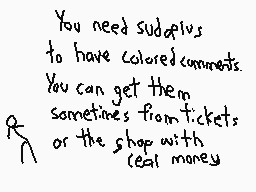 You need sudoplus
to have colored comments.
You can get them
sometimes from tickets
or the shop with
real money